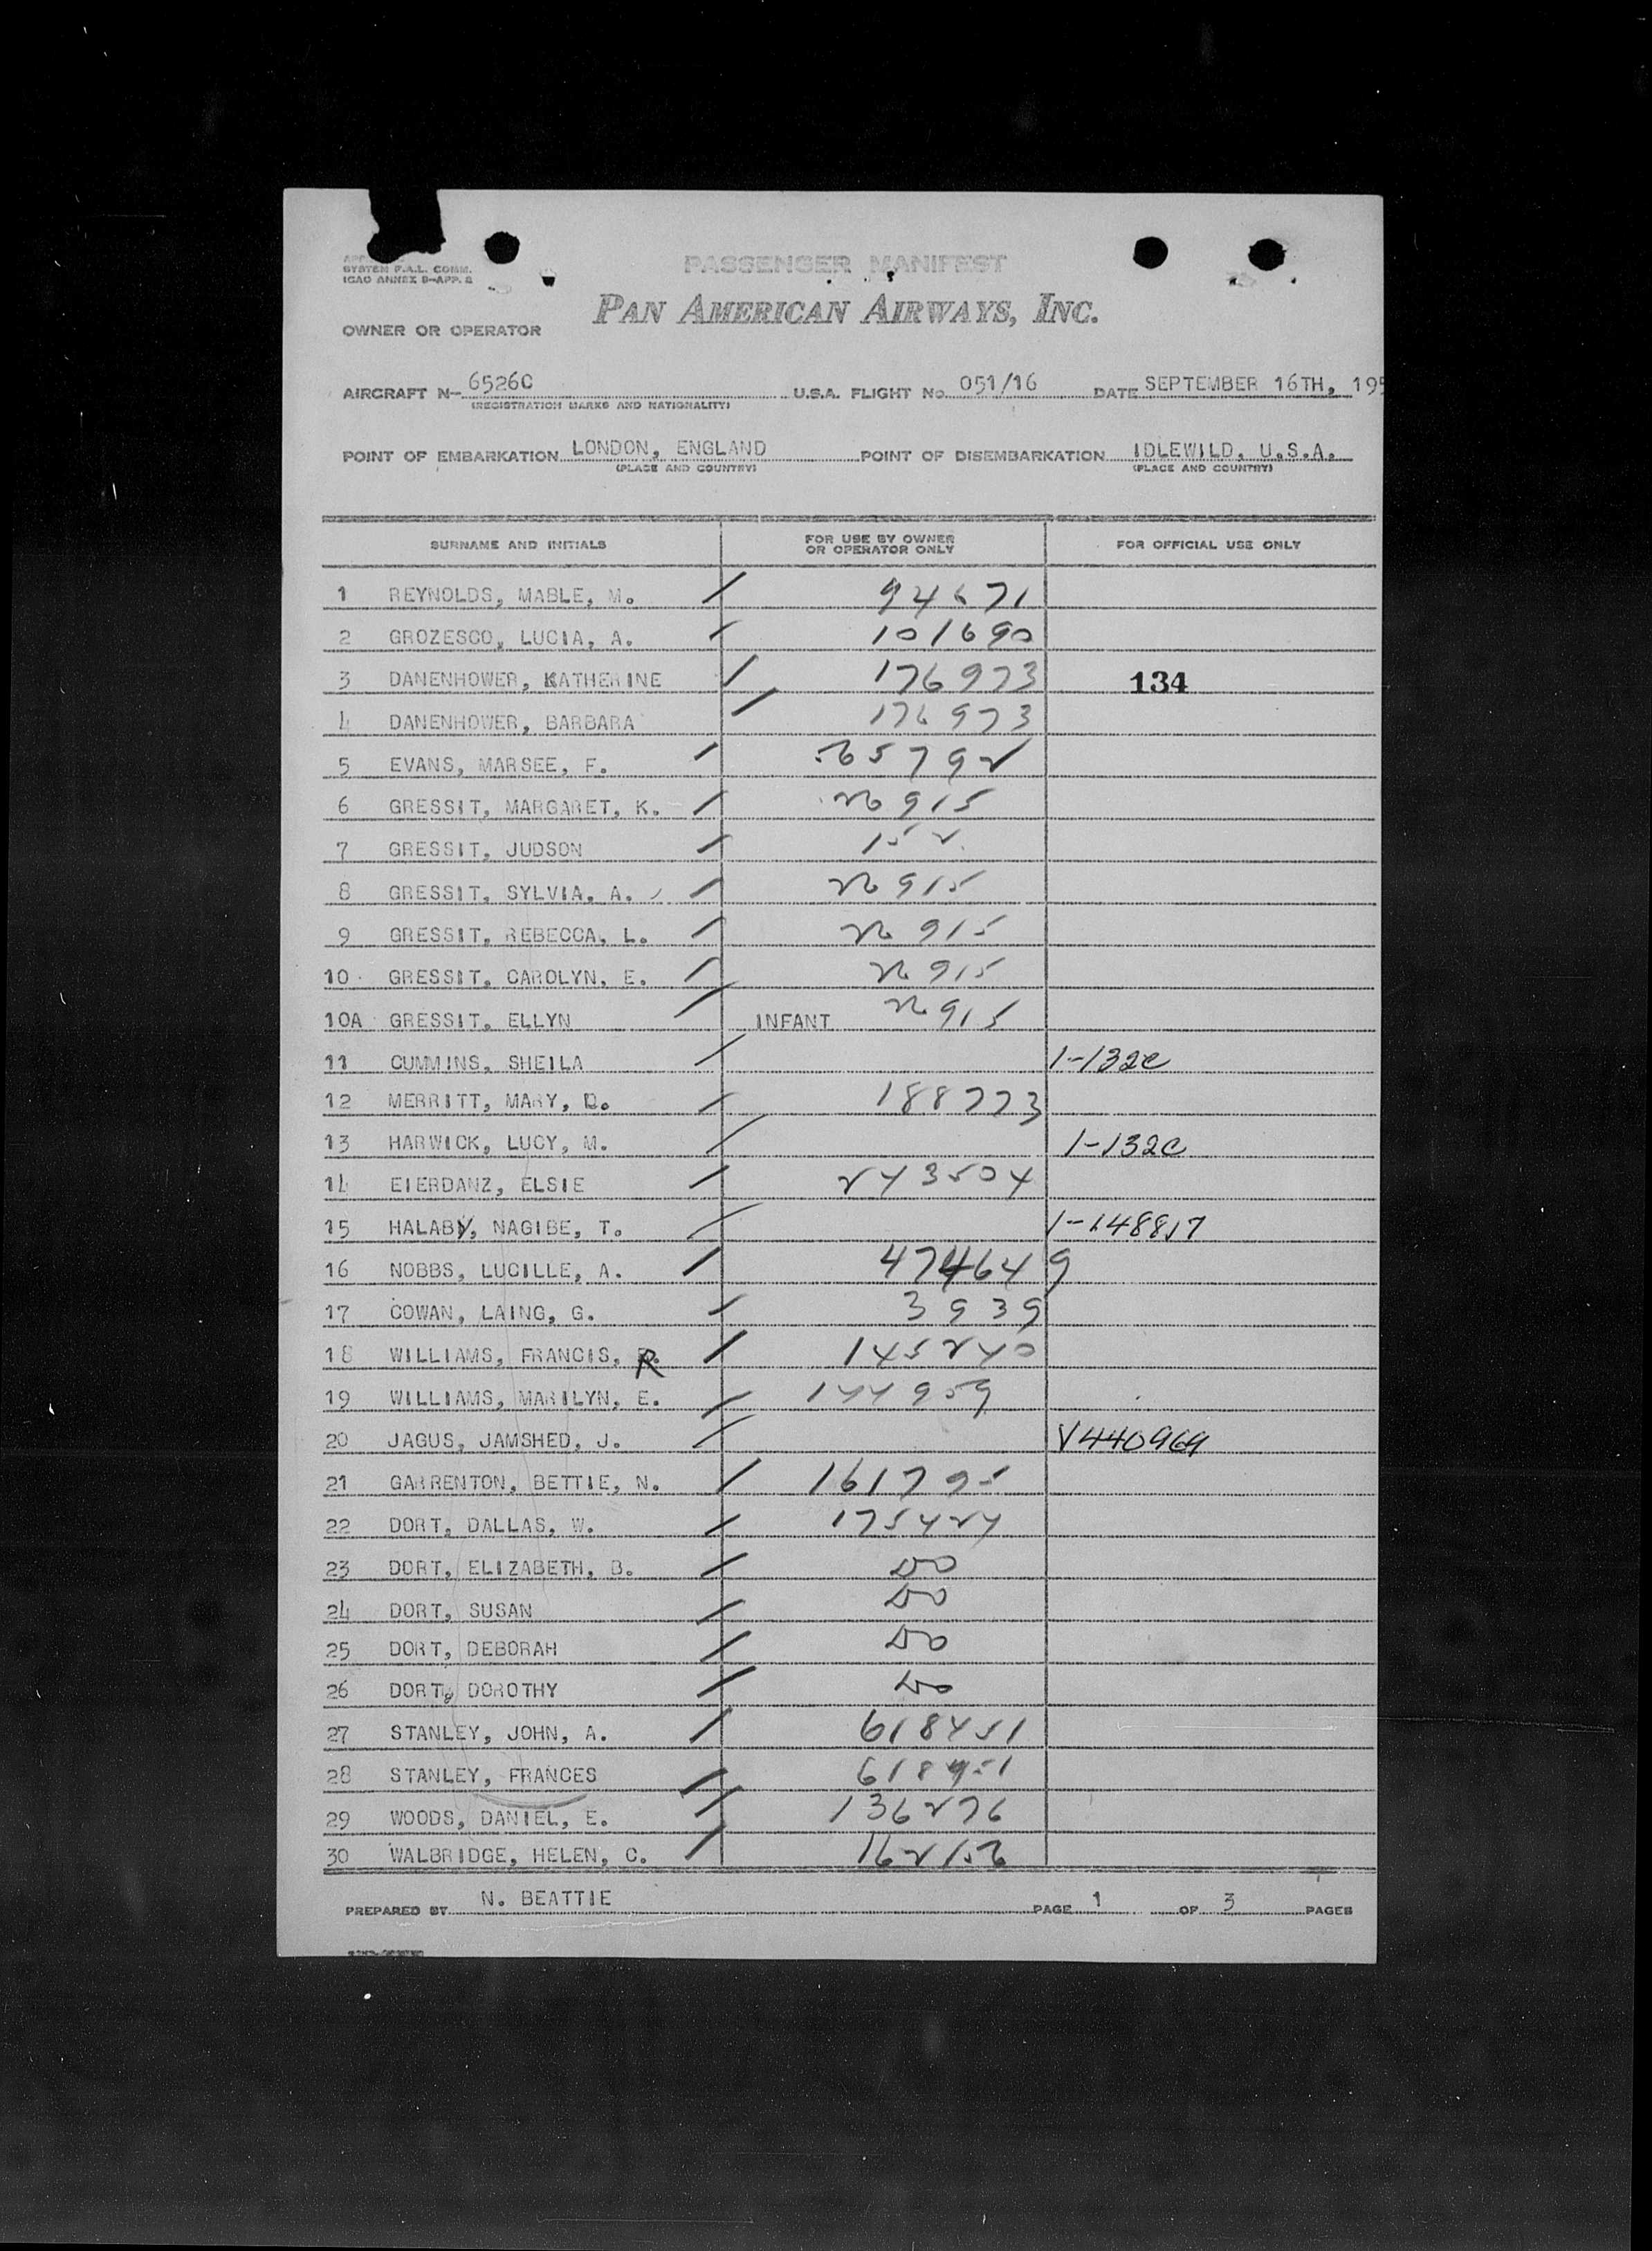 SYSTEM F.A.L. COMM.
ICAO ANNEX 9-APP. 2
PASSENGER MANIFEST
PAN AMERICAN AIRWAYS, INC.
OWNER OR OPERATOR
AIRCRAFT N- 6526C U.S.A. FLIGHT No. 051/16 DATE SEPTEMBER 16TH, 195
(REGISTRATION MARKS AND NATIONALITY)
POINT OF EMBARKATION LONDON, ENGLAND POINT OF DISEMBARKATION IDLEWILD, U.S.A.
(PLACE AND COUNTRY) (PLACE AND COUNTRY)
SURNAME AND INITIALS FOR USE BY OWNER OR OPERATOR ONLY FOR OFFICIAL USE ONLY
1 REYNOLDS, MABLE, M. / 94671
2 GROZESCO, LUCIA, A. / 101690
3 DANENHOWER, KATHERINE / 176973 134
4 DANENHOWER, BARBARA / 176973
5 EVANS, MARSEE, F. / 565792
6 GRESSIT, MARGARET, K. / 26915
7 GRESSIT, JUDSON / 152
8 GRESSIT, SYLVIA, A. / 26915
9 GRESSIT, REBECCA, L. / 26915
10 GRESSIT, CAROLYN, E. / 26915
10A GRESSIT, ELLYN / INFANT 26915
11 CUMMINS, SHEILA / 1-132c
12 MERRITT, MARY, D. / 188773
13 HARWICK, LUCY, M. / 1-132c
14 EIERDANZ, ELSIE / 243504
15 HALABY, NAGIBE, T. / 1-148817
16 NOBBS, LUCILLE, A. / 474649
17 COWAN, LAING, G. / 3939
18 WILLIAMS, FRANCIS, R / 145240
19 WILLIAMS, MARILYN, E. / 144959
20 JAGUS, JAMSHED, J. / V440969
21 GARRENTON, BETTIE, N. / 161795
22 DORT, DALLAS, W. / 175424
23 DORT, ELIZABETH, B. / DO
24 DORT, SUSAN / DO
25 DORT, DEBORAH / DO
26 DORT, DOROTHY / DO
27 STANLEY, JOHN, A. / 618451
28 STANLEY, FRANCES / 618451
29 WOODS, DANIEL, E. / 136276
30 WALBRIDGE, HELEN, C. / 162156
PREPARED BY N. BEATTIE PAGE 1 OF 3 PAGES